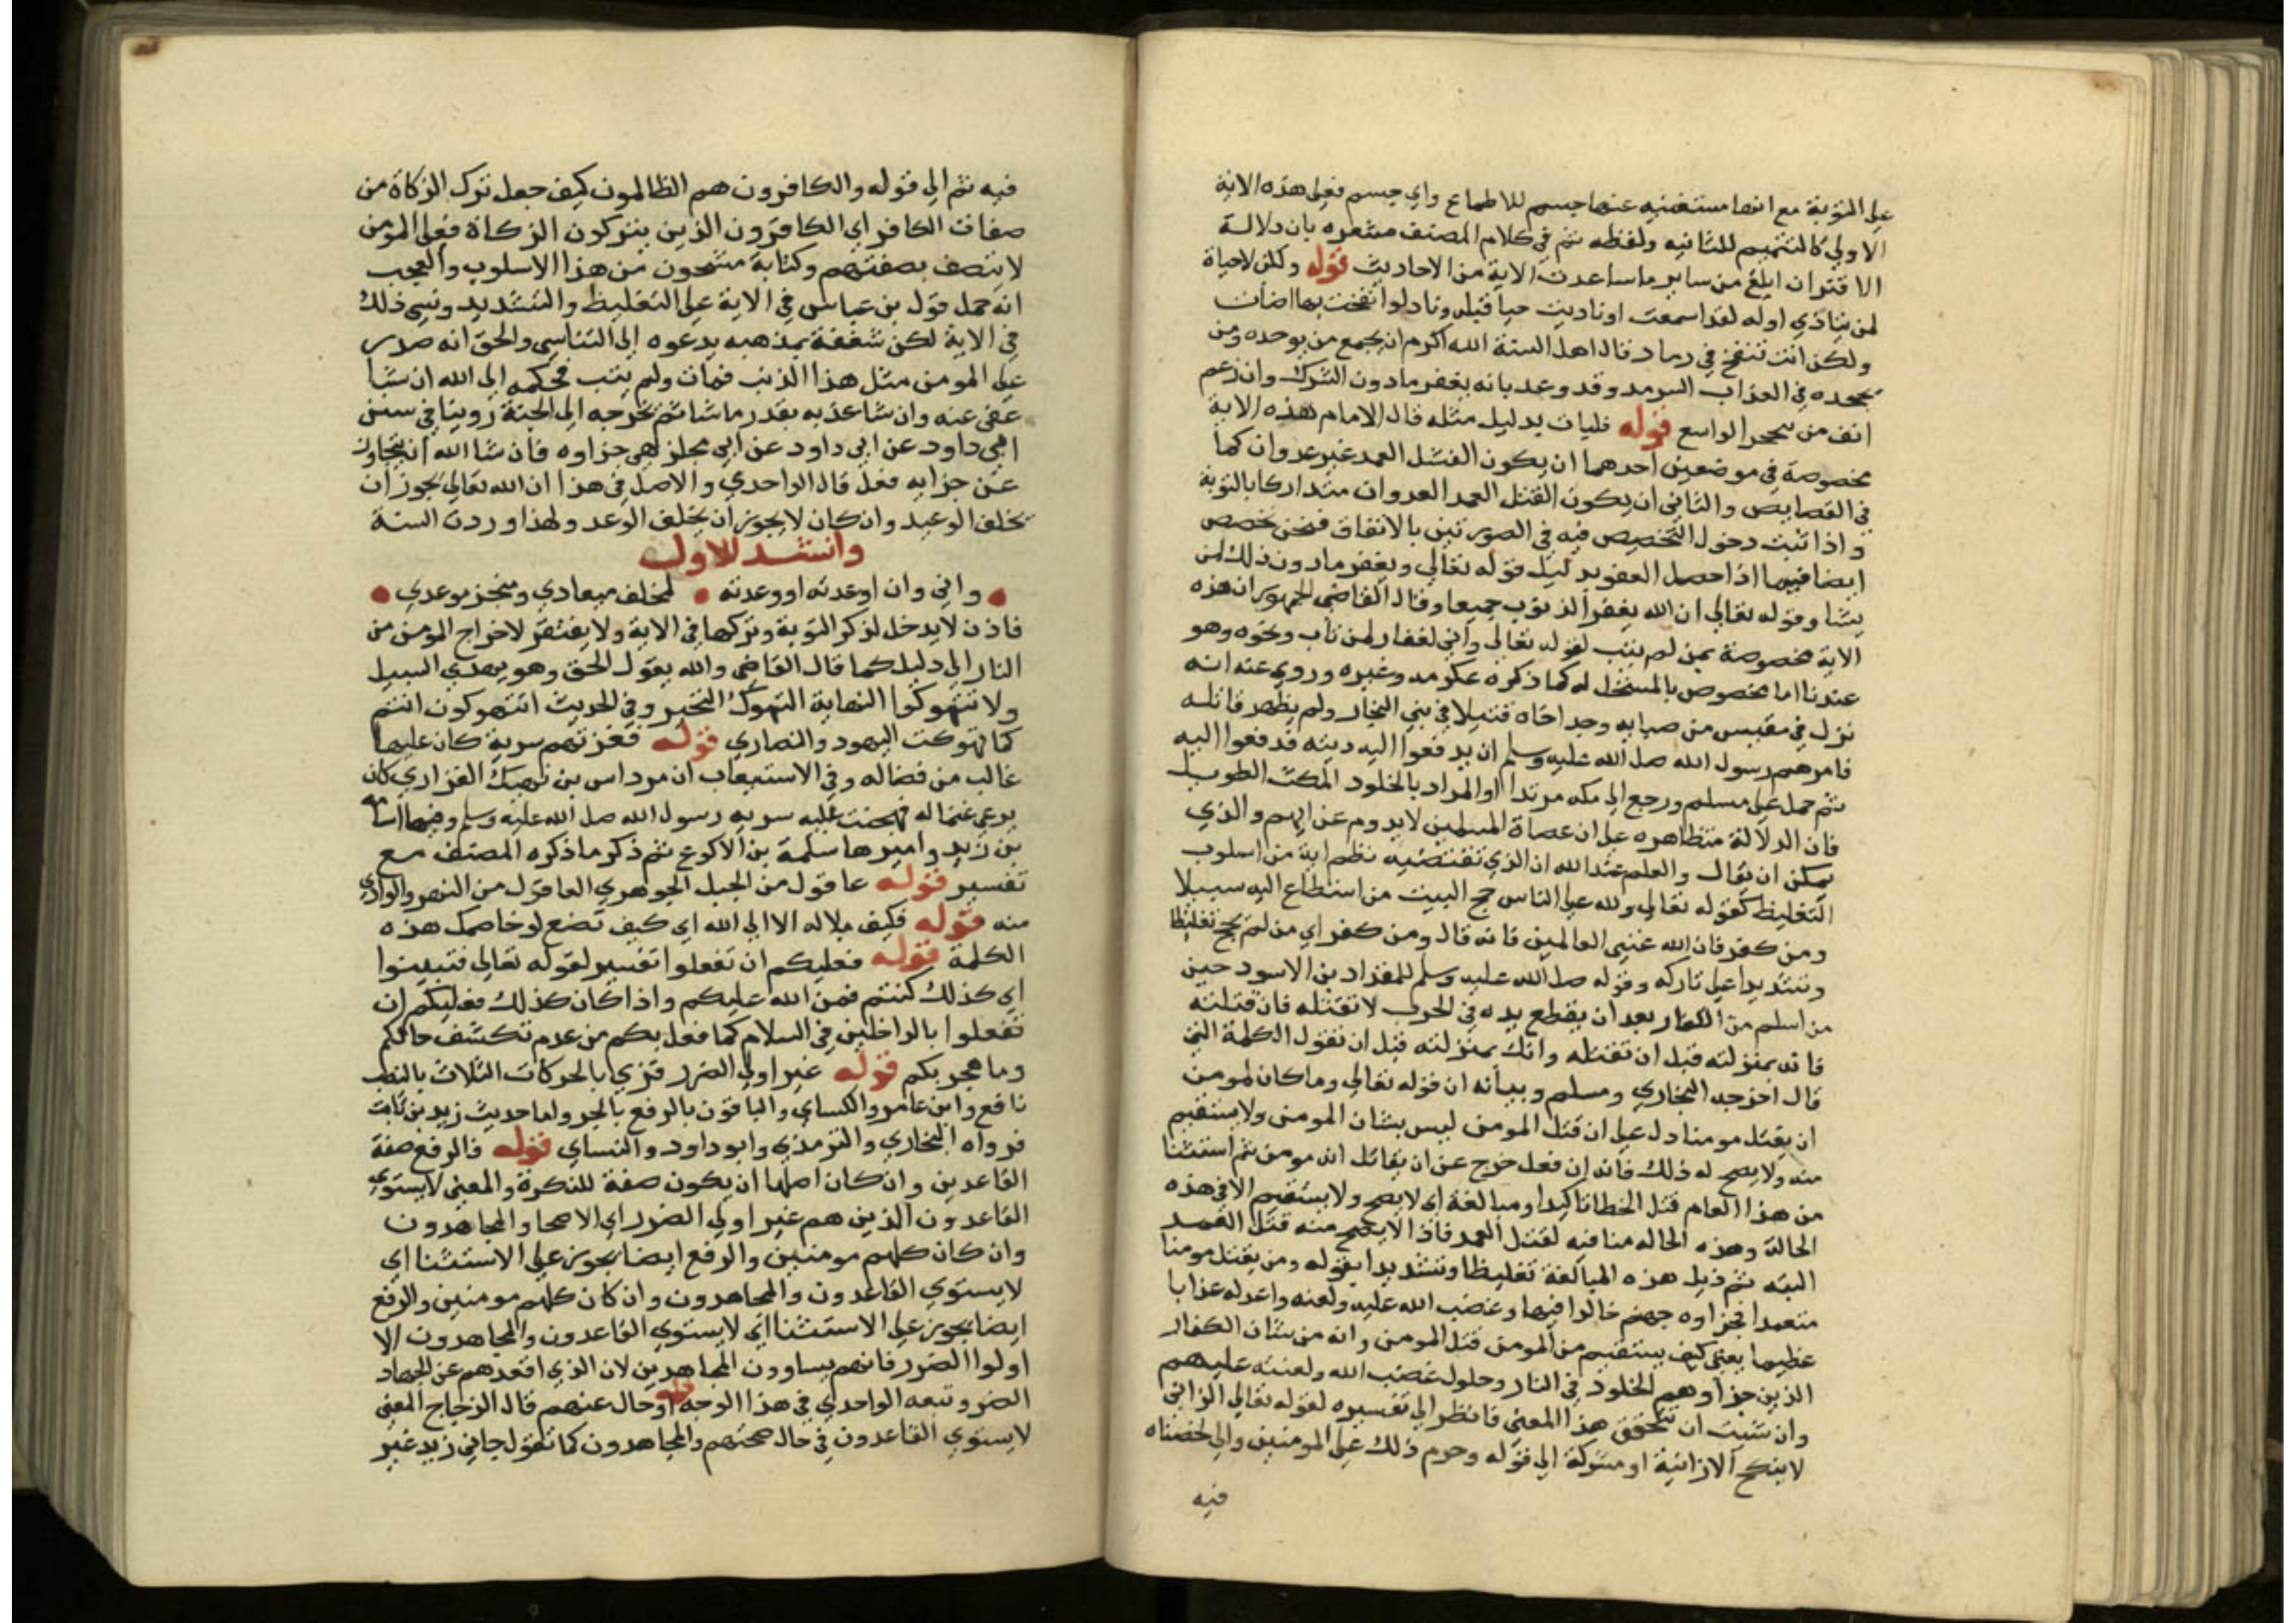 على التوبة مع انها مستغنيه عنها حسم للاطماع واي حسم فعلى هذه الاية
الاولي كالتتميم للثانيه ولفظه ثم في كلام المصنف مشعره بان دلالة
الاقتران ابلغ من ساير ما ساعدت الاية من الاحاديث قوله ولكن لا حياة
لمن ينادي اوله لقد اسمعت لو ناديت حيا قيله ونار لو نفخت بها اضات
ولكن انت تنفخ في رماد قال اهل السنة الله اكرم ان يجمع من يوحده ومن
يجحده في العذاب السرمد وقد وعد بانه يغفر ما دون الشرك وان زعم
انف من يحجر الواسع قوله فليات بدليل مثله قال الامام هذه الاية
مخصوصة في موضعين احدهما ان يكون القتل العمد غير عدوان كما
في القصايص والثاني ان يكون القتل العمد العدوان متداركا بالتوبة
واذا ثبت دخول التخصيص فيه في الصورتين بالاتفاق فنحن نخصص
ايضا فيما اذا حصل العفو بدليل قوله تعالي ويغفر ما دون ذلك لمن
يشا وقوله تعالي ان الله يغفر الذنوب جميعا وقال القاضي الجمهور ان هذه
الاية مخصوصة بمن لم يتب لقوله تعالي واني لغفار لمن تاب ونحوه وهو
عندنا اما مخصوص بالمستحل له كما ذكره عكرمه وغيره وروي عنه انه
نزل في مقيس من صبابه وجد اخاه قتيلا في بني النجار ولم يظهر قاتله
فامرهم رسول الله صلى الله عليه وسلم ان يدفعوا اليه ديته فدفعوا اليه
ثم حمل على مسلم ورجع الى مكه مرتدا او المراد بالخلود المكث الطويل
فان الدلالة متظاهره على ان عصاة المسلمين لا يدوم عذابهم والذي
يمكن ان يقال والعلم عند الله ان الذي تقتضيه نظم اية من اسلوب
التغليظ كقوله تعالي ولله على الناس حج البيت من استطاع اليه سبيلا
ومن كفر فان الله غني العالمين فانه قال ومن كفر اي من لم يحج تغليظا
وتشديدا على تاركه وقوله صلى الله عليه وسلم للمقداد بن الاسود حين
من اسلم من الكفار بعد ان يقطع يده في الحرب لا تقتله فان قتلته
فانه بمنزلته قبل ان تقتله وانك بمنزلته قبل ان تقول الكلمة التي
قال اخرجه البخاري ومسلم وبيانه ان قوله تعالي وما كان لمومن
ان يقتل مومنا دل على ان قتل المومن ليس بشان المومن ولا يستقيم
منه ولا يصح له ذلك فانه ان فعل خرج عن ان يقال انه مومن ثم استثنا
من هذا العام قتل الخطا تاكيدا ومبالغة اي لا يصح ولا يستقيم الا في هذه
الحالة وهذه الحاله منافيه لقتل العمد فاذا لا يصح منه قتل العمد
البته ثم ذيل هذه المبالغة تغليظا وتشديدا بقوله ومن يقتل مومنا
متعمدا فجزاوه جهنم خالدا فيها وغضب الله عليه ولعنه واعد له عذابا
عظيما يعني كيف يستقيم من المومن قتل المومن وانه من شان الكفار
الذين جزاوهم الخلود في النار وحلول غضب الله ولعنته عليهم
وان شيت ان تتحقق هذا المعني فانظر الى تفسيره لقوله تعالي الزاني
لا ينكح الا زانية او مشركة الى قوله وحرم ذلك على المومنين والى
فيه
فيه ثم الى قوله والكافرون هم الظالمون كيف جعل ترك الزكاة من
صفات الكافر اي الكافرون الذين يتركون الزكاة فعلى المومن
لا يتصف بصفتهم وكتابة مشحون من هذا الاسلوب والعجب
انه حمل قول بن عباس في الاية على التغليظ والتشديد ونسي ذلك
في الاية لكن شغفه بمذهبه يدعوه الى التناسي والحق انه صدر
على المومن مثل هذا الذنب فمات ولم يتب فحكمه الى الله ان شا
عفى عنه وان شا عذبه بقدر ما شا ثم يخرجه الى الجنة روينا في سنن
ابي داود عن ابي داود عن ابي مجلز هي جزاوه فان شا الله ان يتجاوز
عن جزايه فعل قال الواحدي والاصل في هذا ان الله تعالي يجوز ان
يخلف الوعيد وان كان لا يجوز ان يخلف الوعد ولهذا وردت السنة
وانشد للاول
واني وان اوعدته او وعدته • لمخلف ميعادي ومنجز موعدي •
فاذن لا يدخل لذكر التوبة وتركها في الاية ولا يفتقر لاخراج المومن من
النار الى دليل كما قال القاضي والله يقول الحق وهو يهدي السبيل
ولا تتهوكوا النهاية التهوك التحير وفي الحديث اتتهوكون انتم
كما تهوكت اليهود والنصاري قوله فغزتهم سرية كان عليها
غالب من فضاله وفي الاستيعاب ان مرداس بن نهيك الفزاري كان
يرعى غنما له فهجمت عليه سريه رسول الله صلى الله عليه وسلم وفيها اسامه
بن زيد واميرها سلمة بن الاكوع ثم ذكر ما ذكره المصنف مع
تفسير قوله عاقول من الجبل الجوهري العاقول من النهر والوادي
منه قوله فكيف بلا اله الا الى الله اي كيف تضع لو خاصمك هذه
الكلمة قوله فعليكم ان تفعلوا تفسير لقوله تعالي فتبينوا
اي كذلك كنتم فمن الله عليكم واذا كان كذلك فعليكم ان
تفعلوا بالداخلين في السلام كما فعل بكم من عدم تكشف حالكم
وما هجر بكم قوله غير اولي الضرر قزي بالحركات الثلاث بالنصب
نافع وابن عامر والكساي والباقون بالرفع بالجر واما حديث زيد بن ثابت
فرواه البخاري والترمذي وابو داود والنساي قوله فالرفع صفة
القاعدين وان كان اصلها ان يكون صفة للنكرة والمعني لا يستوي
القاعدون الذين هم غير اولي الضرر اي الاصحا والمجاهدون
وان كان كلهم مومنين والرفع ايضا يجوز على الاستثنا اي
لا يستوي القاعدون والمجاهدون وان كان كلهم مومنين والرفع
ايضا يجوز على الاستثنا اي لا يستوي القاعدون والمجاهدون الا
اولوا الضرر فانهم يساوون المجاهدين لان الذي اقعدهم عن الجهاد
الضر وتبعه الواحدي في هذا الوجه قوله اوحال عنهم قال الزجاج المعني
لا يستوي القاعدون في حال صحتهم والمجاهدون كما تقول جاني زيد غير